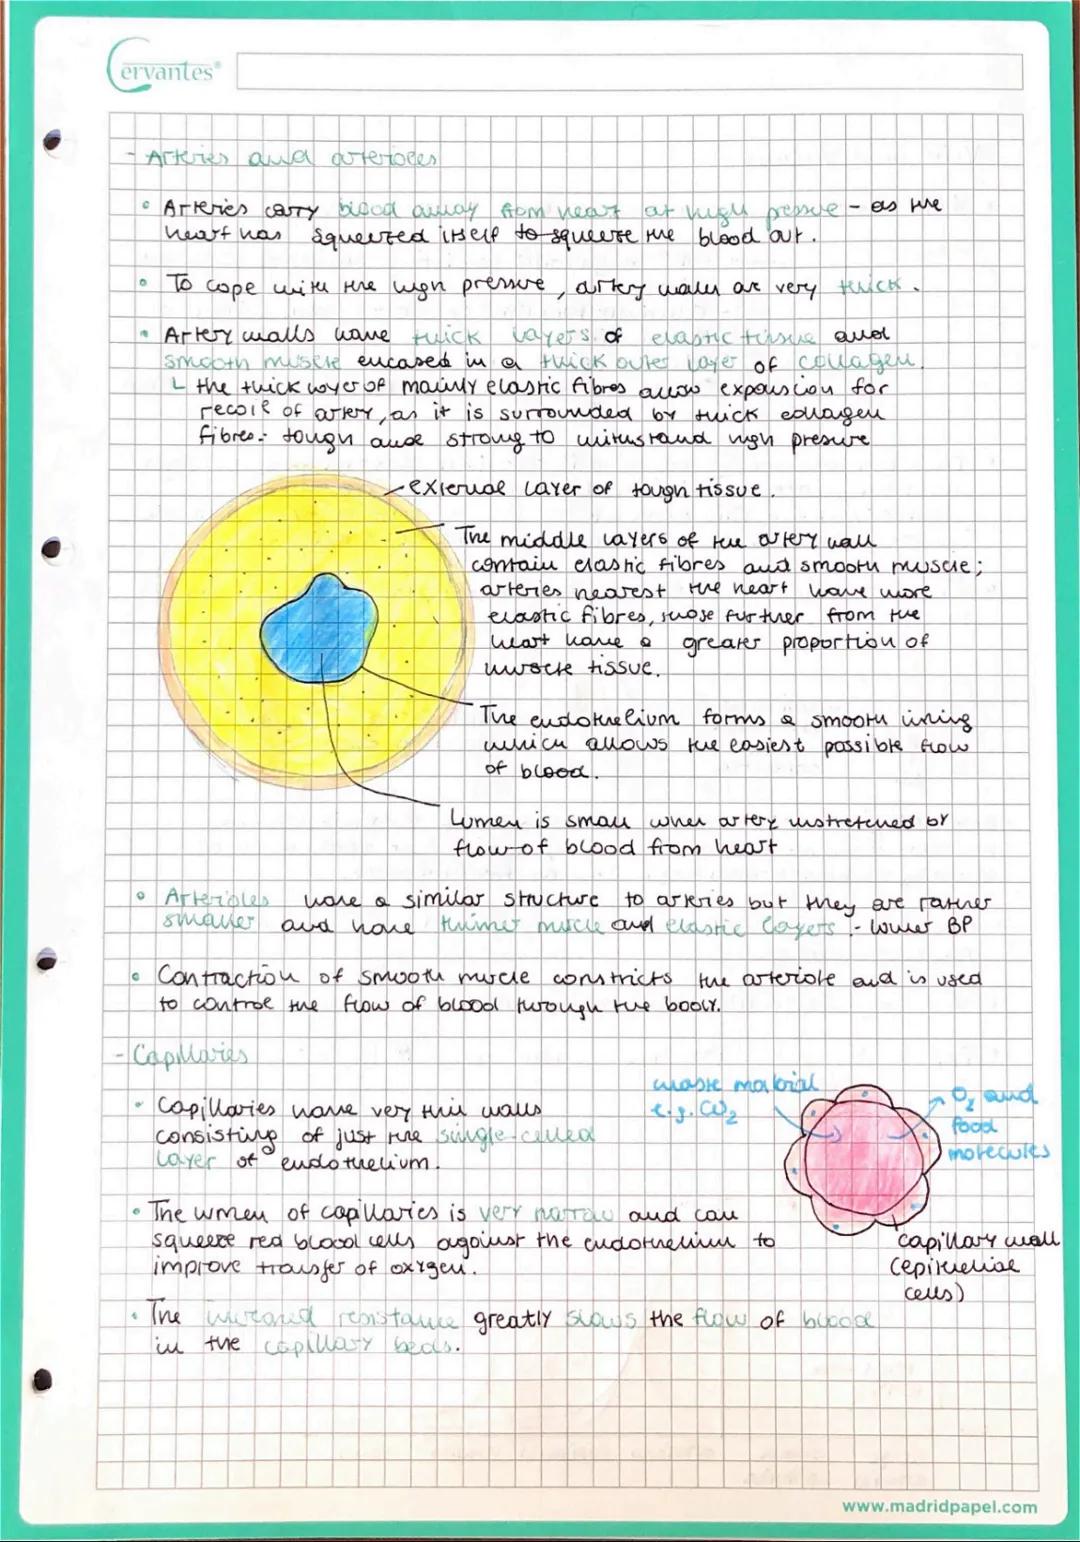 Cervantes®
- Arteries and arterioles
• Arteries carry blood away from heart at high pressure - as the
heart has squeezed itself to squeeze the blood out.
• To cope with the high pressure, artery walls are very thick.
• Artery walls have thick layers of elastic tissue and
smooth muscle encased in a thick outer layer of collagen.
└ the thick layer of mainly elastic fibres allow expansion for
recoil of artery, as it is surrounded by thick collagen
fibres: tough and strong to withstand high pressure
external layer of tough tissue.
The middle layers of the artery wall
contain elastic fibres and smooth muscle;
arteries nearest the heart have more
elastic fibres, those further from the
heart have a greater proportion of
muscle tissue.
The endothelium forms a smooth lining
which allows the easiest possible flow
of blood.
Lumen is small when artery unstretched by
flow of blood from heart
• Arterioles have a similar structure to arteries but they are rather
smaller and have thinner muscle and elastic layers - lower BP
• Contraction of smooth muscle constricts the arteriole and is used
to control the flow of blood through the body.
- Capillaries
waste material
e.g. CO₂
O₂ and
food
molecules
• Capillaries have very thin walls
consisting of just the single-celled
layer of endothelium.
• The lumen of capillaries is very narrow and can
squeeze red blood cells against the endothelium to
improve transfer of oxygen.
capillary wall
(epithelial
cells)
• The increased resistance greatly slows the flow of blood
in the capillary beds.
www.madridpapel.com